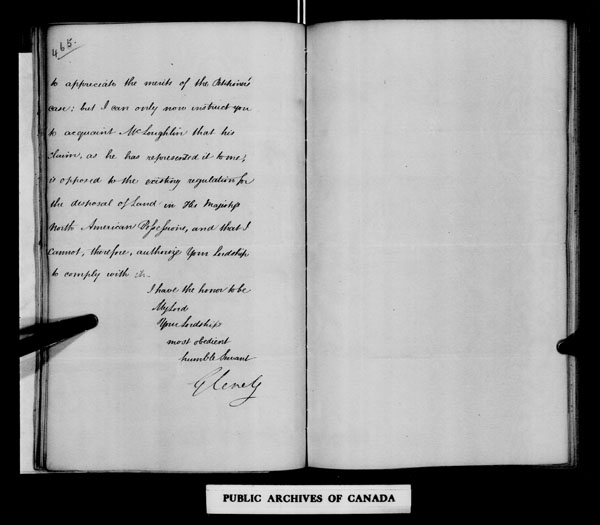 465.
to appreciate the merits of the Petitioner's
case: but I can only now instruct you
to acquaint McLoughlin that his
claim, as he has represented it to me,
is opposed to the existing regulation for
the disposal of Land in His Majesty's
North American Possessions, and that I
cannot, therefore, authorize Your Lordship
to comply with it.
I have the honor to be
My Lord
Your Lordship's
most obedient
humble Servant
Glenelg
PUBLIC ARCHIVES OF CANADA